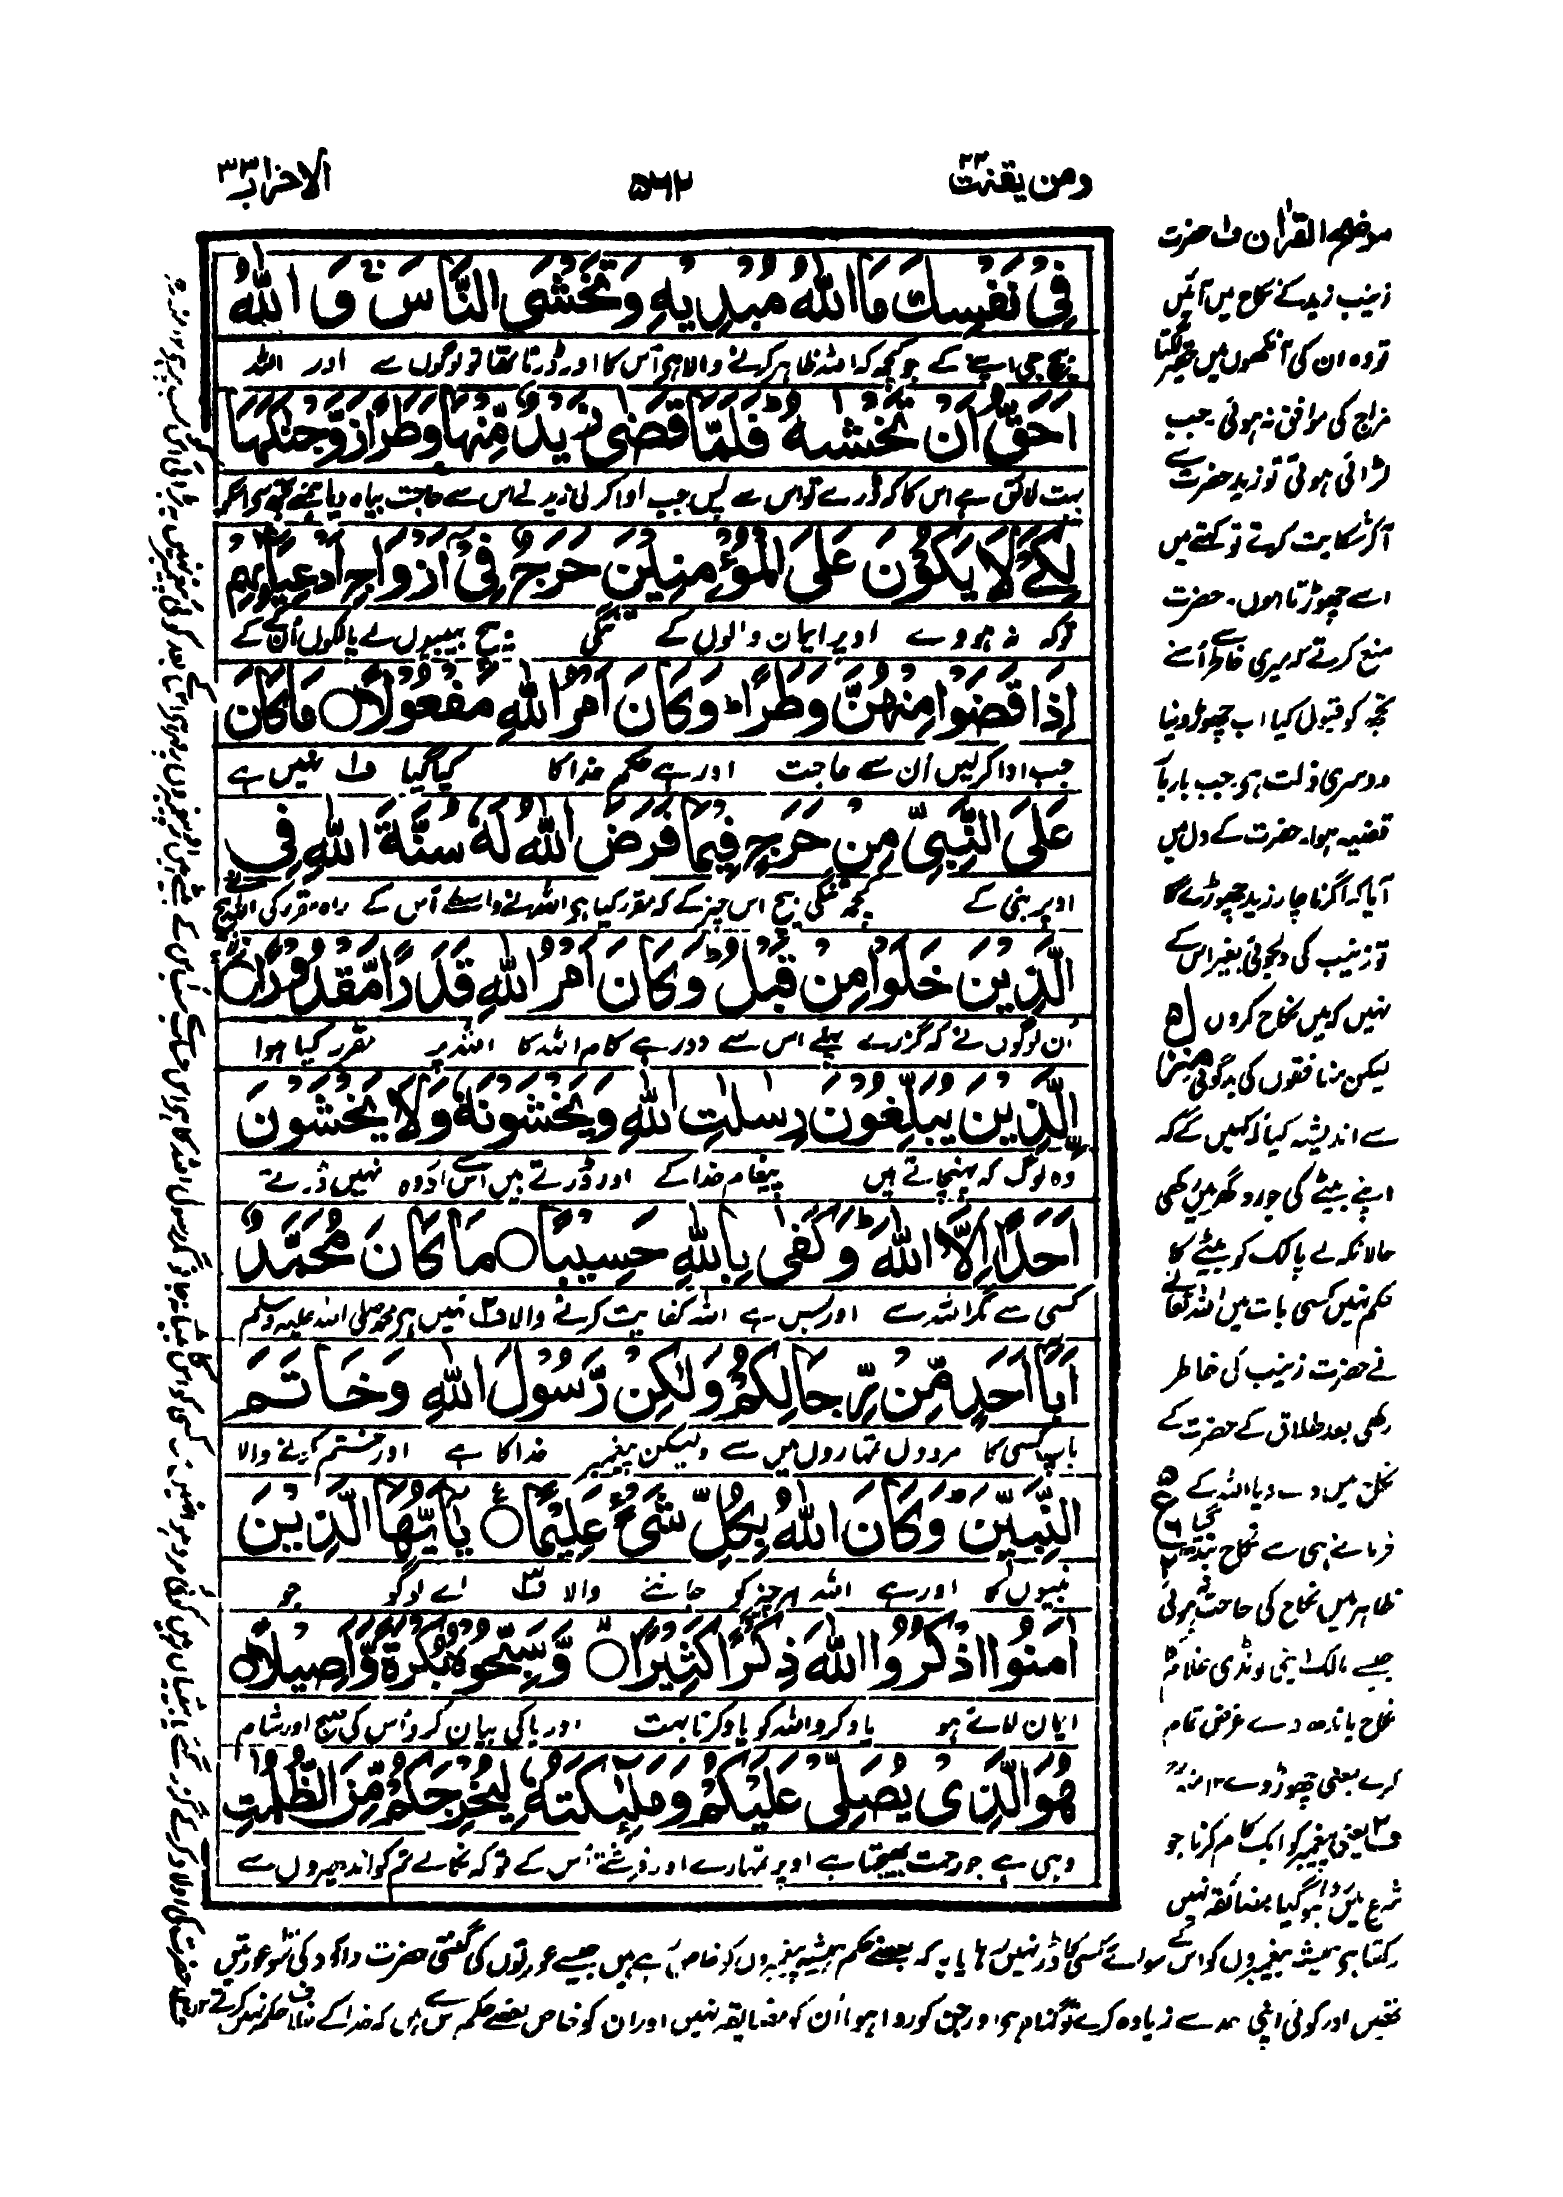 ومن يقنت ٢٢
٥٦٢
الاحزاب ٣٣
فِىْ نَفْسِكَ مَا اللّٰهُ مُبْدِيْهِ وَتَخْشَى النَّاسَ ۚ وَ اللّٰهُ
بیچ جی اپنے کے جو کچھ کہ اللہ ظاہر کرنے والا ہے اُس کا اور ڈرتا تھا تو لوگوں سے اور اللہ
اَحَقُّ اَنْ تَخْشٰىهُ ؕ فَلَمَّا قَضٰى زَيْدٌ مِّنْهَا وَطَرًا زَوَّجْنٰكَهَا
بہت لائق ہے اس کا کہ ڈرے تو اس سے پس جب ادا کرلی زید نے اس سے حاجت بیاہ دیا ہمنے تجھ سے اسکو
لِكَىْ لَا يَكُوْنَ عَلَى الْمُؤْمِنِيْنَ حَرَجٌ فِىْٓ اَزْوَاجِ اَدْعِيَآئِهِمْ
توکہ نہ ہووے اوپر ایمان والوں کے تنگی بیچ بیبیوں لے پالکوں اُن کے کے
اِذَا قَضَوْا مِنْهُنَّ وَطَرًا ؕ وَكَانَ اَمْرُ اللّٰهِ مَفْعُوْلًا ○ مَا كَانَ
جب ادا کرلیں اُن سے حاجت اور ہے حکم خدا کا کیا گیا ف۱ نہیں ہے
عَلَى النَّبِىِّ مِنْ حَرَجٍ فِيْمَا فَرَضَ اللّٰهُ لَهٗ ؕ سُنَّةَ اللّٰهِ فِى
اوپر نبی کے کچھ تنگی بیچ اس چیز کے کہ مقرر کیا ہے اللہ نے واسطے اُس کے راہ مقرر کی اللہ نے بیچ
الَّذِيْنَ خَلَوْا مِنْ قَبْلُ ؕ وَكَانَ اَمْرُ اللّٰهِ قَدَرًا مَّقْدُوْرًا ○
اُن لوگوں نے کہ گزرے پہلے اس سے اور ہے کام اللہ کا مقرر کیا ہوا
الَّذِيْنَ يُبَلِّغُوْنَ رِسٰلٰتِ اللّٰهِ وَيَخْشَوْنَهٗ وَلَا يَخْشَوْنَ
وہ لوگ کہ پہنچاتے ہیں پیغام خدا کے اور ڈرتے ہیں اُس سے اور وہ نہیں ڈرتے
اَحَدًا اِلَّا اللّٰهَ ؕ وَكَفٰى بِاللّٰهِ حَسِيْبًا ○ مَا كَانَ مُحَمَّدٌ
کسی سے مگر اللہ سے اور بس ہے اللہ کفایت کرنے والا ف۲ نہیں ہے محمد صلی اللہ علیہ وسلم
اَبَآ اَحَدٍ مِّنْ رِّجَالِكُمْ وَلٰكِنْ رَّسُوْلَ اللّٰهِ وَخَاتَمَ
باپ کسی کا مردوں تمہاروں میں سے ولیکن پیغمبر خدا کا ہے اور ختم کرنے والا
النَّبِيّٖنَ ؕ وَكَانَ اللّٰهُ بِكُلِّ شَىْءٍ عَلِيْمًا ○ يٰٓاَيُّهَا الَّذِيْنَ
نبیوں کا اور ہے اللہ ہر چیز کو جاننے والا ف۳ اے لوگو جو
اٰمَنُوا اذْكُرُوا اللّٰهَ ذِكْرًا كَثِيْرًا ○ وَّسَبِّحُوْهُ بُكْرَةً وَّاَصِيْلًا ○
ایمان لائے ہو یاد کرو اللہ کو یاد کرنا بہت اور پاکی بیان کرو اُس کی صبح اور شام
هُوَ الَّذِىْ يُصَلِّىْ عَلَيْكُمْ وَمَلٰٓئِكَتُهٗ لِيُخْرِجَكُمْ مِّنَ الظُّلُمٰتِ
وہی ہے جو رحمت بھیجتا ہے اوپر تمہارے اور فرشتے اُس کے توکہ نکالے تم کو اندھیروں سے
موضح القرآن ف۱ حضرت
زینب زید کے نکاح میں آئیں
تو وہ ان کی آنکھوں میں حقیر لگتا
مزاج کی موافق نہ ہوئی۔ جب
لڑائی ہوئی تو زید حضرت سے
آکر شکایت کرتے تو کہتے میں
اسے چھوڑتا ہوں۔ حضرت
منع کرتے کہ میری خاطر سے اُسنے
تجھ کو قبول کیا اب چھوڑ دینا
دوسری ذلت ہے۔ جب بار بار
قضیہ ہوا۔ حضرت کے دل میں
آیا کہ اگر ناچار زید چھوڑے گا
تو زینب کی دلجوئی بغیر اس کے
نہیں کہ میں نکاح کروں
لیکن منافقوں کی بدگوئی
سے اندیشہ کیا کہ کہیں گے کہ
اپنے بیٹے کی جورو گھر میں رکھی
حالانکہ لے پالک کو بیٹے کا
حکم نہیں کسی بات میں اللہ تعالٰے
نے حضرت زینب کی خاطر
رکھی بعد طلاق کے حضرت کے
نکاح میں دے دیا اللہ کے
فرمانے ہی سے نکاح بندھ گیا
ظاہر میں نکاح کی حاجت نہ ہوئی
جیسے مالک اپنی لونڈی غلام کا
نکاح باندھ دے غرض تمام
کرے یعنی چھوڑ دے ۱۲ منہ
ف۲ یعنی پیغمبر کو ایک کام کرنا جو
شرع میں روا ہو گیا مضائقہ نہیں
رکھتا ہے ہمیشہ پیغمبروں کو اس کے سوائے کسی کا ڈر نہیں رہا یا یہ کہ بعضے حکم ہمیشہ پیغمبروں کو خاص رہے ہیں جیسے عورتوں کی گنتی حضرت داؤد کی سو عورتیں
تھیں اور کوئی اپنی حد سے زیادہ کرے تو گناہ ہے اور جن کو روا ہو اُن کو مضائقہ نہیں اور ان کو خاص بعضے حکم